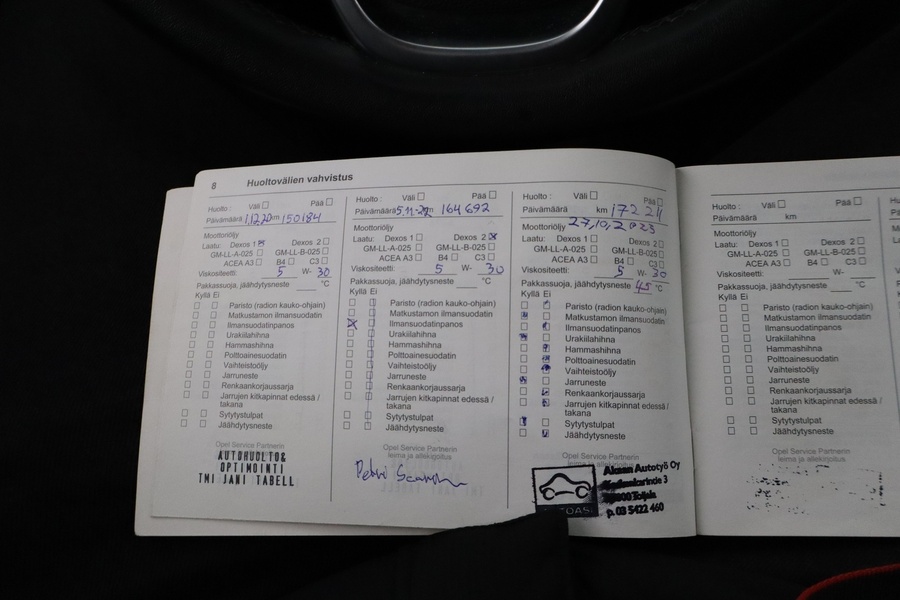 8 Huoltovälien vahvistus
Huolto : Väli Pää
Päivämäärä 1.12.20 km 150184
Moottoriöljy
Laatu: Dexos 1 Dexos 2
GM-LL-A-025 GM-LL-B-025
ACEA A3 B4 C3
Viskositeetti: 5 W- 30
Pakkassuoja, jäähdytysneste °C
Kyllä Ei
Paristo (radion kauko-ohjain)
Matkustamon ilmansuodatin
Ilmansuodatinpanos
Urakiilahihna
Hammashihna
Polttoainesuodatin
Vaihteistoöljy
Jarruneste
Renkaankorjaussarja
Jarrujen kitkapinnat edessä /
takana
Sytytystulpat
Jäähdytysneste
Opel Service Partnerin
leima ja allekirjoitus
AUTOHUOLTO&
OPTIMOINTI
TMI JANI TABELL
Huolto : Väli Pää
Päivämäärä 5.11.22 km 164692
Moottoriöljy
Laatu: Dexos 1 Dexos 2
GM-LL-A-025 GM-LL-B-025
ACEA A3 B4 C3
Viskositeetti: 5 W- 30
Pakkassuoja, jäähdytysneste °C
Kyllä Ei
Paristo (radion kauko-ohjain)
Matkustamon ilmansuodatin
Ilmansuodatinpanos
Urakiilahihna
Hammashihna
Polttoainesuodatin
Vaihteistoöljy
Jarruneste
Renkaankorjaussarja
Jarrujen kitkapinnat edessä /
takana
Sytytystulpat
Jäähdytysneste
Opel Service Partnerin
leima ja allekirjoitus
Petri
Huolto : Väli Pää
Päivämäärä km 172211
Moottoriöljy 27,10,2023
Laatu: Dexos 1 Dexos 2
GM-LL-A-025 GM-LL-B-025
ACEA A3 B4 C3
Viskositeetti: 5 W- 30
Pakkassuoja, jäähdytysneste 45 °C
Kyllä Ei
Paristo (radion kauko-ohjain)
Matkustamon ilmansuodatin
Ilmansuodatinpanos
Urakiilahihna
Hammashihna
Polttoainesuodatin
Vaihteistoöljy
Jarruneste
Renkaankorjaussarja
Jarrujen kitkapinnat edessä /
takana
Sytytystulpat
Jäähdytysneste
Opel Service Partnerin
leima ja allekirjoitus
Akaan Autotyö Oy
Toijala
p. 03 5422 460
Huolto : Väli Pää
Päivämäärä km
Moottoriöljy
Laatu: Dexos 1 Dexos 2
GM-LL-A-025 GM-LL-B-025
ACEA A3 B4 C3
Viskositeetti: W-
Pakkassuoja, jäähdytysneste °C
Kyllä Ei
Paristo (radion kauko-ohjain)
Matkustamon ilmansuodatin
Ilmansuodatinpanos
Urakiilahihna
Hammashihna
Polttoainesuodatin
Vaihteistoöljy
Jarruneste
Renkaankorjaussarja
Jarrujen kitkapinnat edessä /
takana
Sytytystulpat
Jäähdytysneste
Opel Service Partnerin
leima ja allekirjoitus